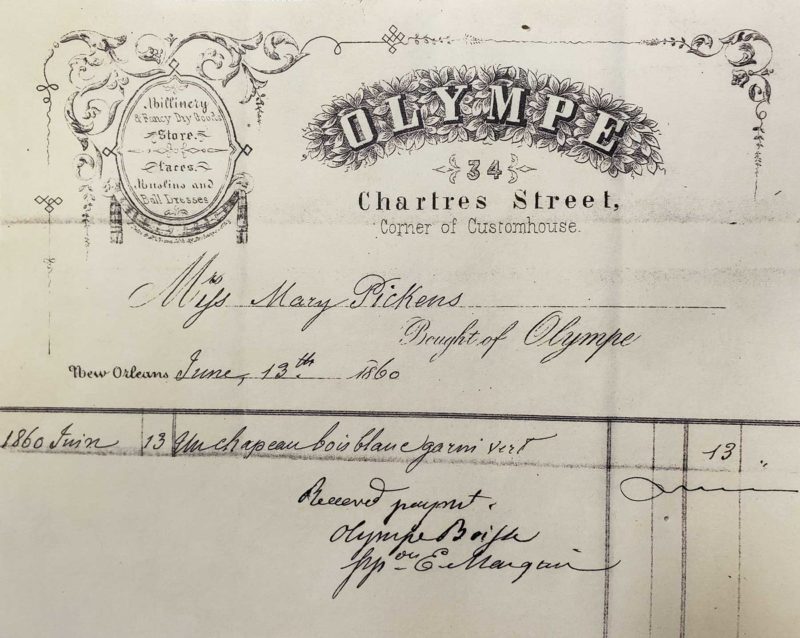 Millinery
& Fancy Dry Goods
Store.
Laces.
Muslins and
Ball Dresses
OLYMPE
34
Chartres Street,
Corner of Customhouse.
Miss Mary Pickens
Bought of Olympe
New Orleans June, 13th. 1860
1860 Juin 13 Un chapeau bois blanc garni vert 13 "
Received paymt.
Olympe
E. Mangain